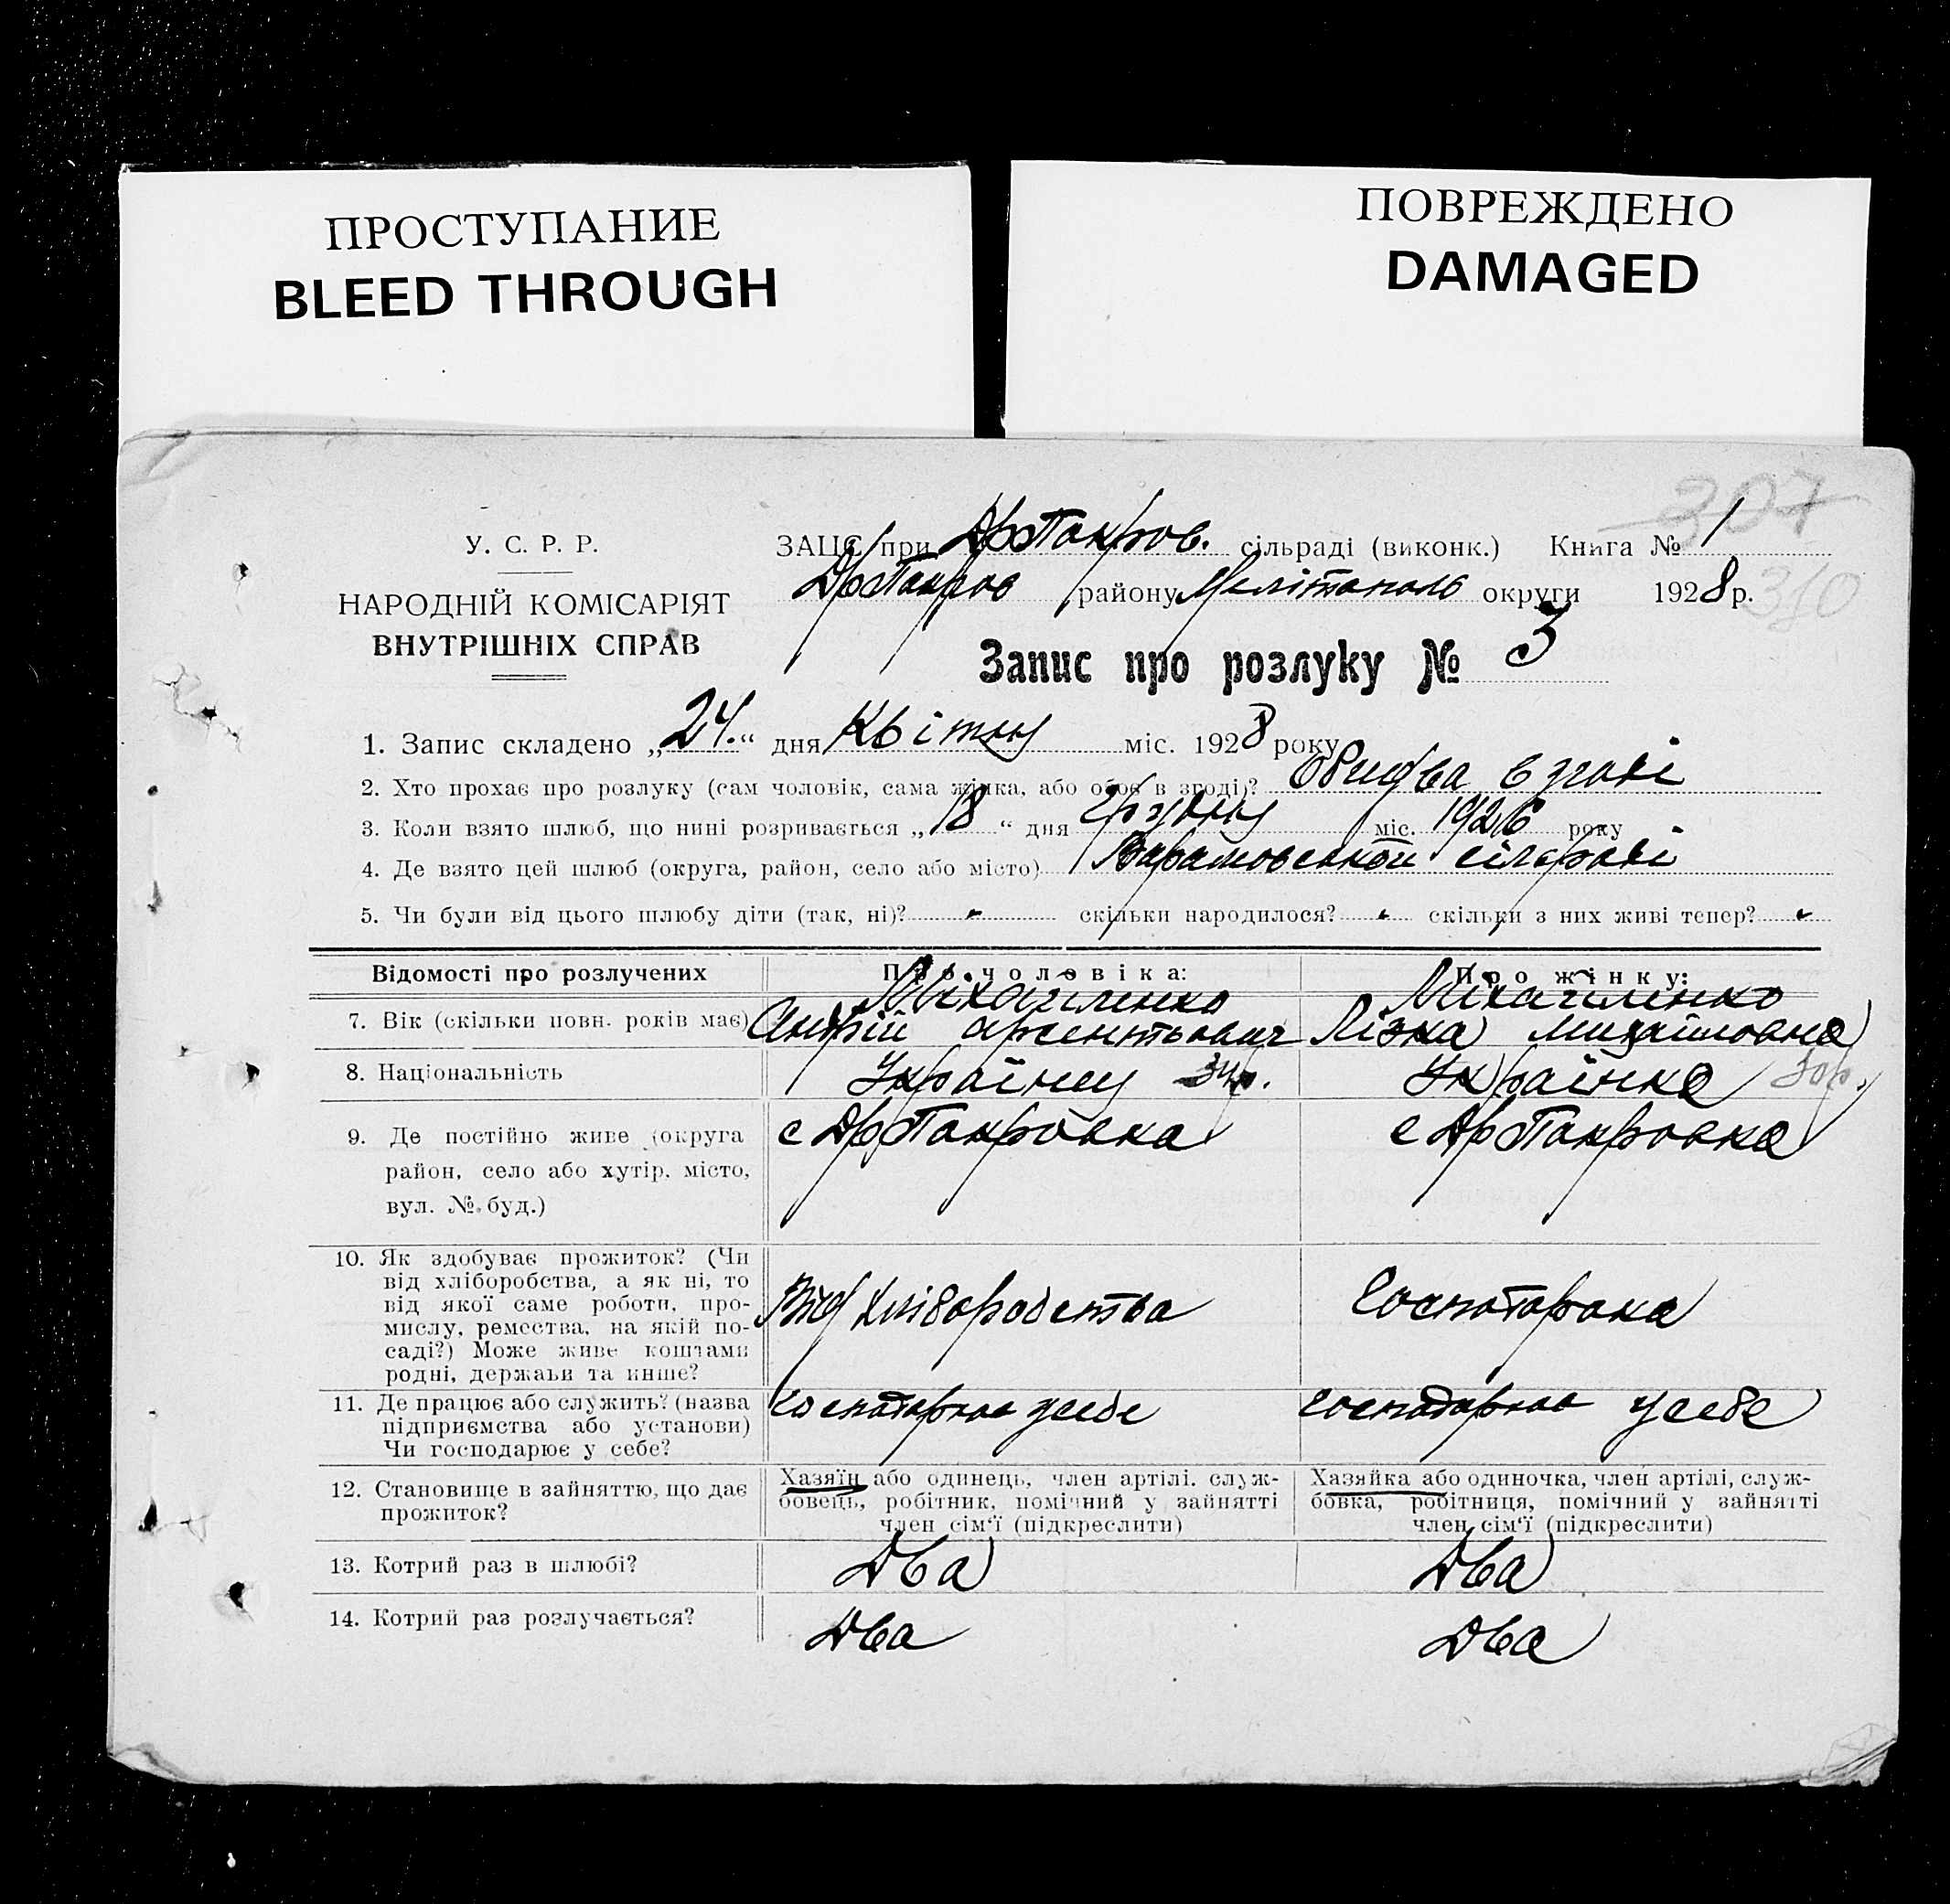 ПРОСТУПАНИЕ
BLEED THROUGH
ПОВРЕЖДЕНО
DAMAGED
307
310
У. С. Р. Р.
НАРОДНІЙ КОМІСАРІЯТ
ВНУТРІШНІХ СПРАВ
ЗАЦС при Др Покров. сільраді (виконк.) Книга № 1
Др Покров району Мелітополь округи 1928 р.
Запис про розлуку № 3
1. Запис складено „24.“ дня Квітня міс. 1928 року
2. Хто прохає про розлуку (сам чоловік, сама жінка, або обоє в згоді)? Обидва в згоді
3. Коли взято шлюб, що нині розривається „18“ дня Грудня міс. 1926 року
4. Де взято цей шлюб (округа, район, село або місто) сільраді
5. Чи були від цього шлюбу діти (так, ні)? - скільки народилося? - скільки з них живі тепер? -
Відомості про розлучених Про чоловіка: Про жінку:
Міхайленко Міхайленко
7. Вік (скільки повн. років має) Андрій Арсентьович Лізка Михайловна
8. Національність Українец 34р. Українка 30р.
9. Де постійно живе (округа район, село або хутір, місто, вул. № буд.) с Др Покровка с Др Покровка
10. Як здобуває прожиток? (Чи
від хліборобства, а як ні, то
від якої саме роботи, про-
мислу, ремества, на якій по-
саді?) Може живе коштами
родні, держави та инше?
Від хліборобства Господарка
11. Де працює або служить? (назва
підприємства або установи)
Чи господарює у себе?
господарює усебе господарює усебе
12. Становище в зайняттю, що дає
прожиток?
Хазяїн або одинець, член артілі, служ-
бовець, робітник, помічний у зайнятті
член сім'ї (підкреслити)
Хазяйка або одиночка, член артілі, служ-
бовка, робітниця, помічний у зайнятті
член сім'ї (підкреслити)
13. Котрий раз в шлюбі? Два Два
14. Котрий раз розлучається? Два Два